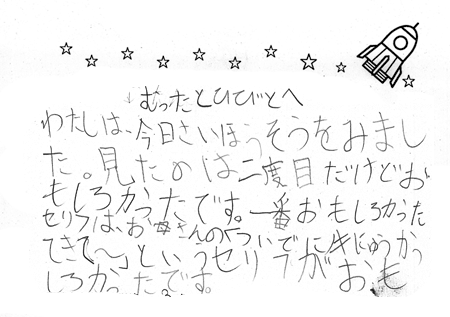 むったとひびとへ
わたしは、今日さいほうそうをみまし
た。見たのは二度目だけどお
もしろかったです。一番おもしろかった
セリフは、お母さんの「ついでに牛にゅうかっ
てきて〜」というセリフがおも
しろかったです。